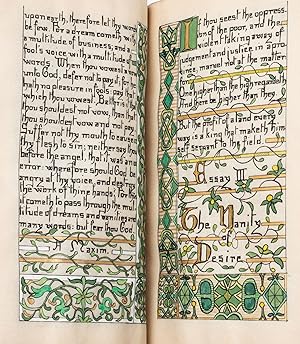 upon earth, therefore let thy words
be few. For a dream cometh w
a multitude of business, and a
fool's voice with a multitude of
words. When thou vowest a vow
unto God, defer not to pay it, he
hath no pleasure in fools: pay that
which thou vowest. Better is it
thou shouldest not vow, than
thou shouldest vow and not pay.
Suffer not thy mouth to cause
thy flesh to sin; neither say thou
before the angel, that it was an
error: wherefore should God be
angry at thy voice, and destroy
the work of thine hands? For this
cometh to pass through the mul
titude of dreams and vanities and
many words: but fear thou God.
A Maxim.
If thou seest the oppress
ion of the poor, and the
violent taking away of
judgement and justice in a pro
vince, marvel not at the matter
since,
One higher than the high regardeth
And there be higher than they.
But the profit of a land every
way is a king that maketh him
self servant to the field.
Essay III
The Vanity
of
Desire.